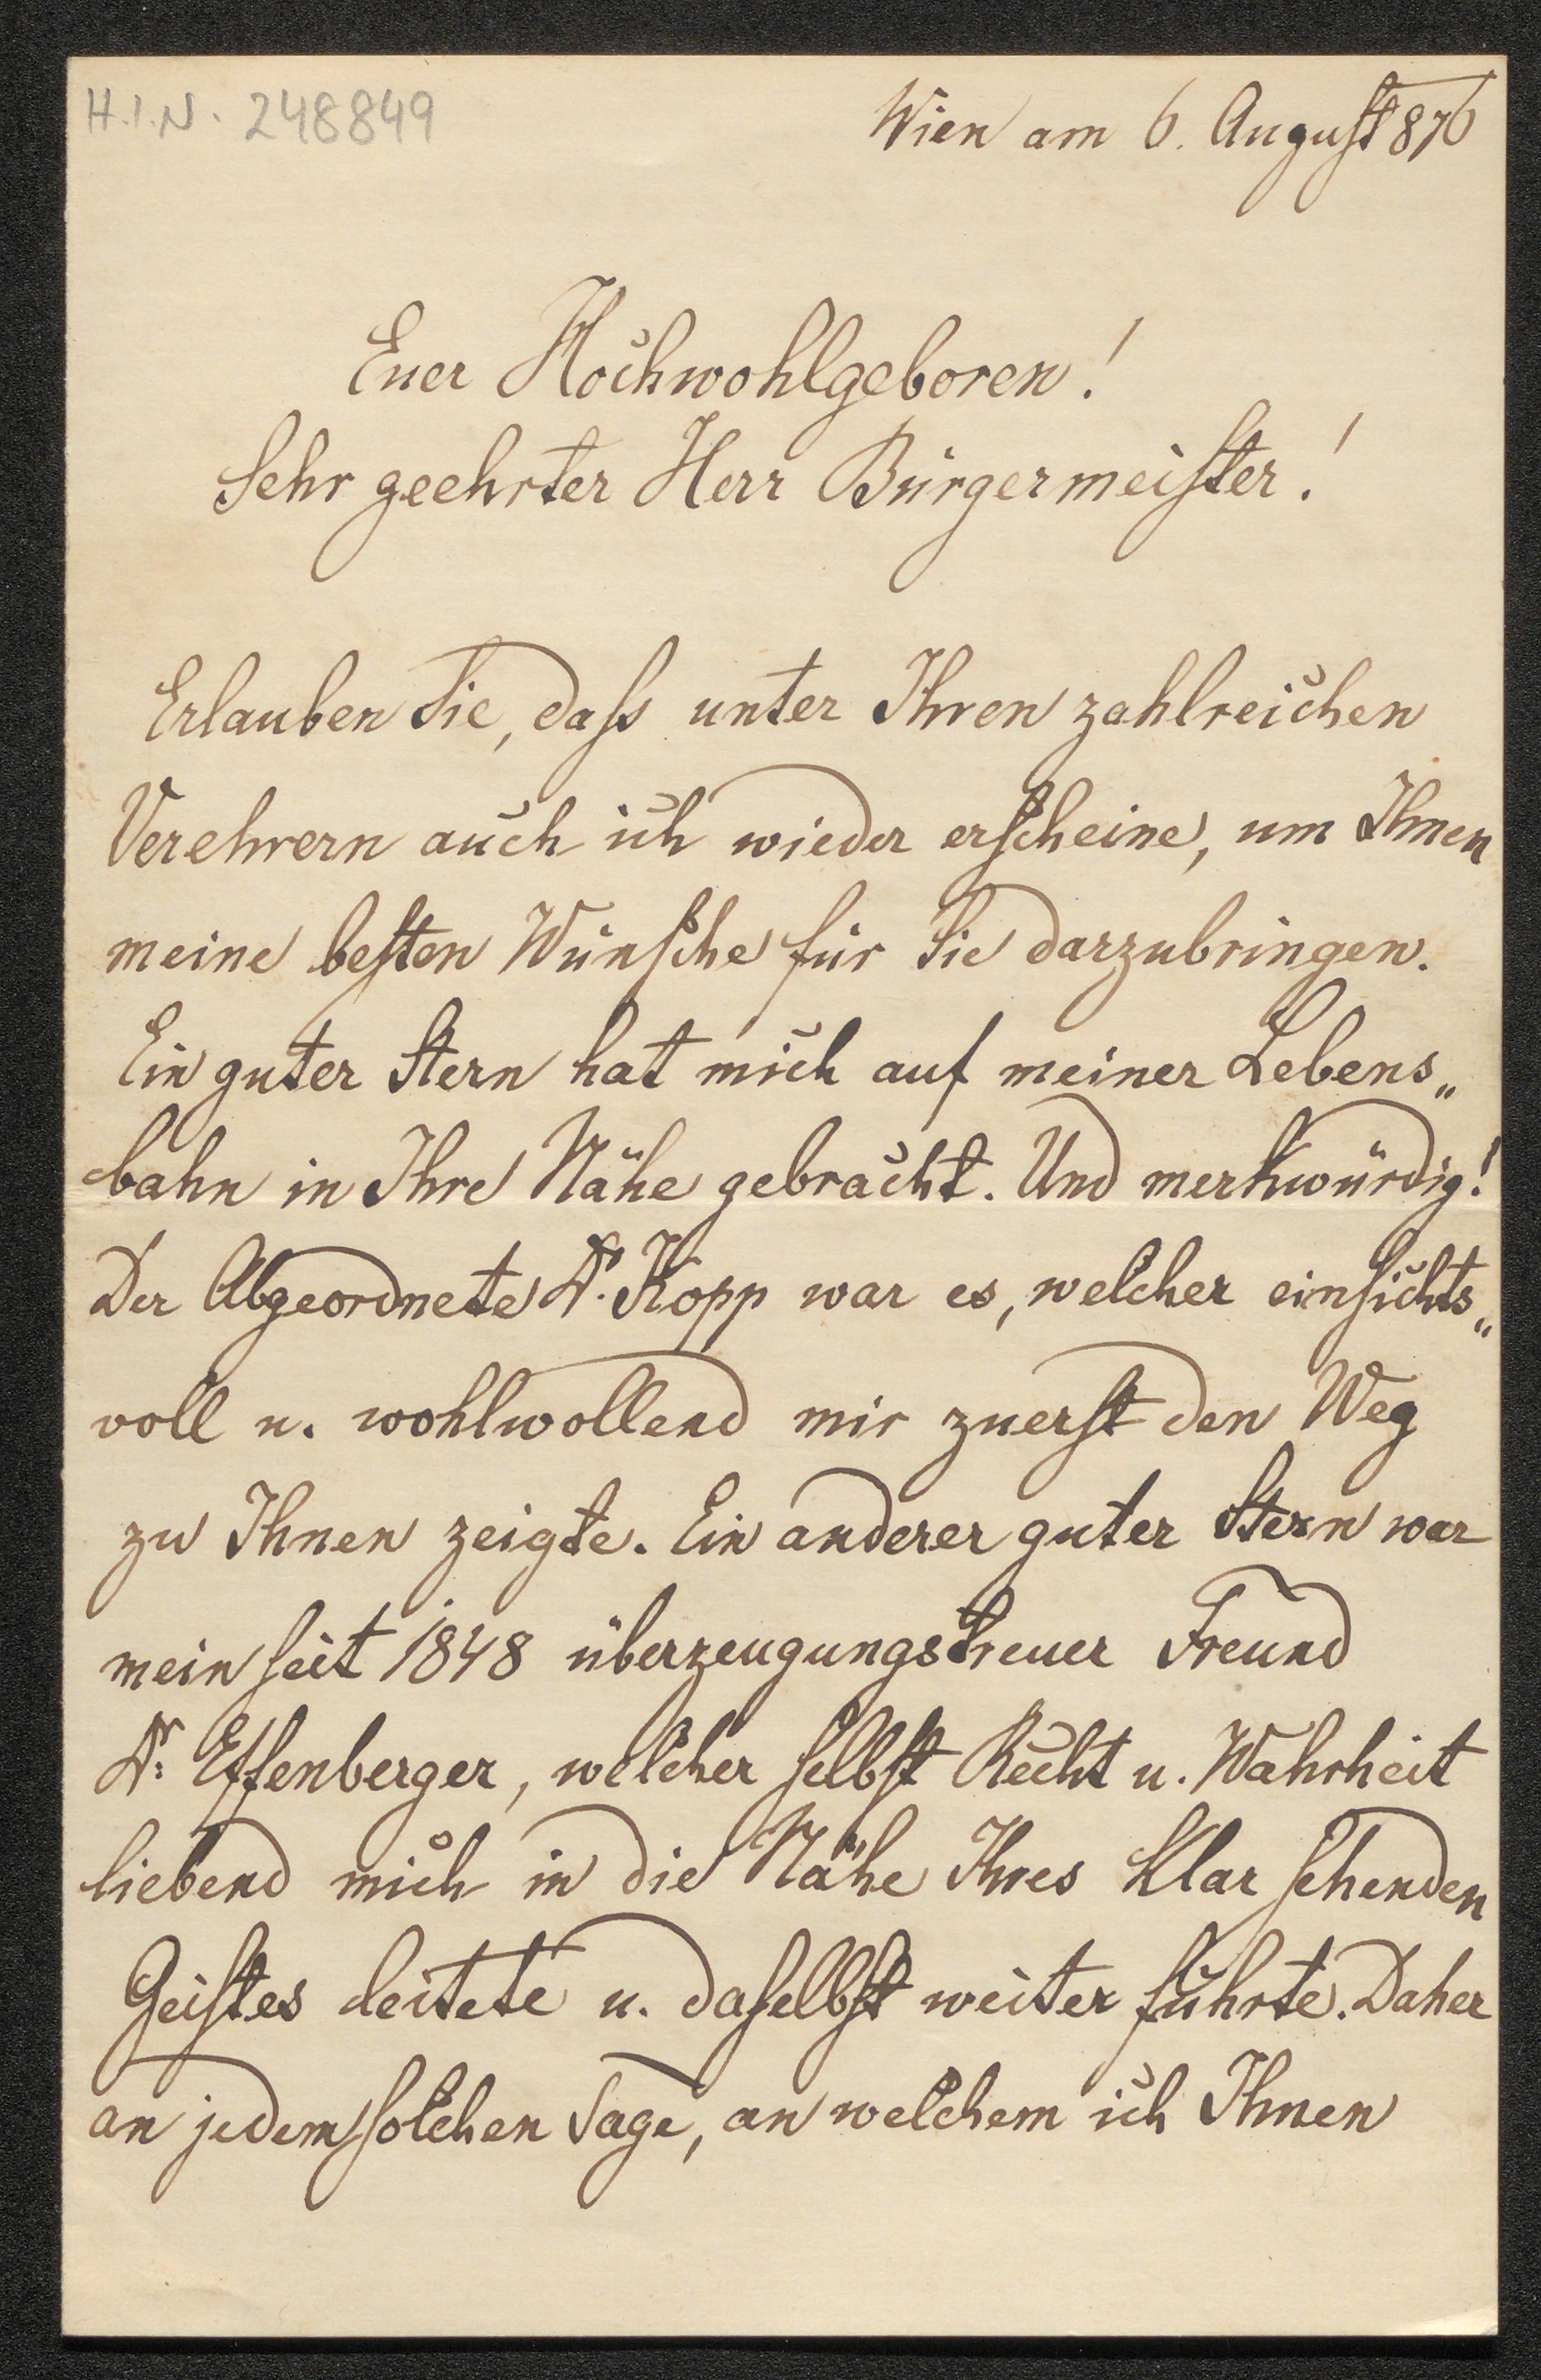 H.I.N. 248849
Wien am 6. August 876
Euer Hochwohlgeboren!
Sehr geehrter Herr Bürgermeister!
Erlauben Sie, daß unter Ihren zahlreichen
Verehrern auch ich wieder erscheine, um Ihnen
meine besten Wünsche für Sie darzubringen.
Ein guter Stern hat mich auf meiner Lebens„
bahn in Ihre Nähe gebracht. Und merkwürdig!
Der Abgeordnete Dr. Kopp war es, welcher einsichts„
voll u. wohlwollend mir zuerst den Weg
zu Ihnen zeigte. Ein anderer guter Stern war
mein seit 1848 überzeugungstreuer Freund
Dr. Effenberger, welcher selbst Recht u. Wahrheit
liebend mich in die Nähe Ihres klar sehenden
Geistes leitete u. daselbst weiter führte. Daher
an jedem solchen Tage, an welchem ich Ihnen